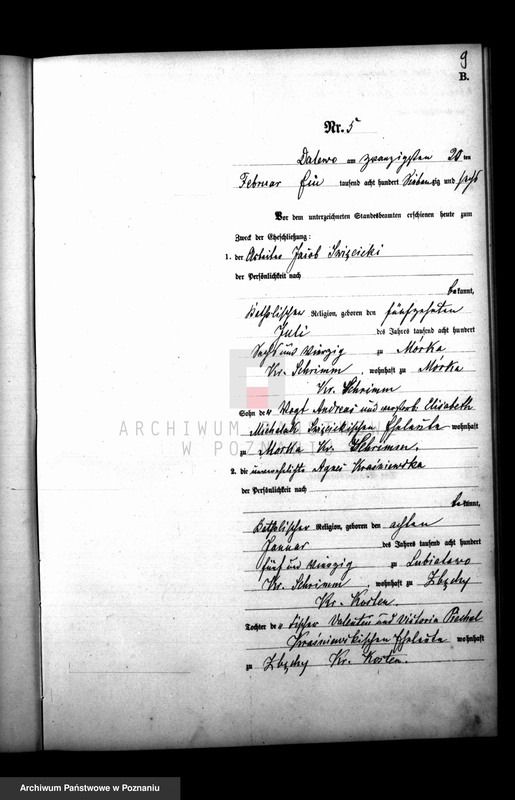 9
B.
Nr. 5
Dalewo am zwanzigsten 20 ten
Februar Ein tausend acht hundert Siebenzig und sechs
Vor dem unterzeichneten Standesbeamten erschienen heute zum
Zweck der Eheschließung:
1. der Arbeiter Jacob Swięcicki
der Persönlichkeit nach
bekannt,
Katholischer Religion, geboren den fünfzehnten
Juli des Jahres tausend acht hundert
Sechs und Vierzig zu Mórka
Kr. Schrimm, wohnhaft zu Mórka
Kr. Schrimm
Sohn der Vogt Andreas und verstorb. Elisabeth
Michalak Swięcickischen Eheleute wohnhaft
zu Morka Kr. Schrimm.
2. die unverehelichte Agnes Kraśniewska
der Persönlichkeit nach
bekannt,
Katholischer Religion, geboren den achten
Januar des Jahres tausend acht hundert
fünf und vierzig zu Lubiatowo
Kr. Schrimm, wohnhaft zu Zbęchy
Kr. Kosten.
Tochter der Fischer Valentin und Victoria
Kraśniewskischen Eheleute wohnhaft
zu Zbęchy Kr. Kosten.
ARCHIWUM PAŃSTWOWE
W POZNANIU
Archiwum Państwowe w Poznaniu